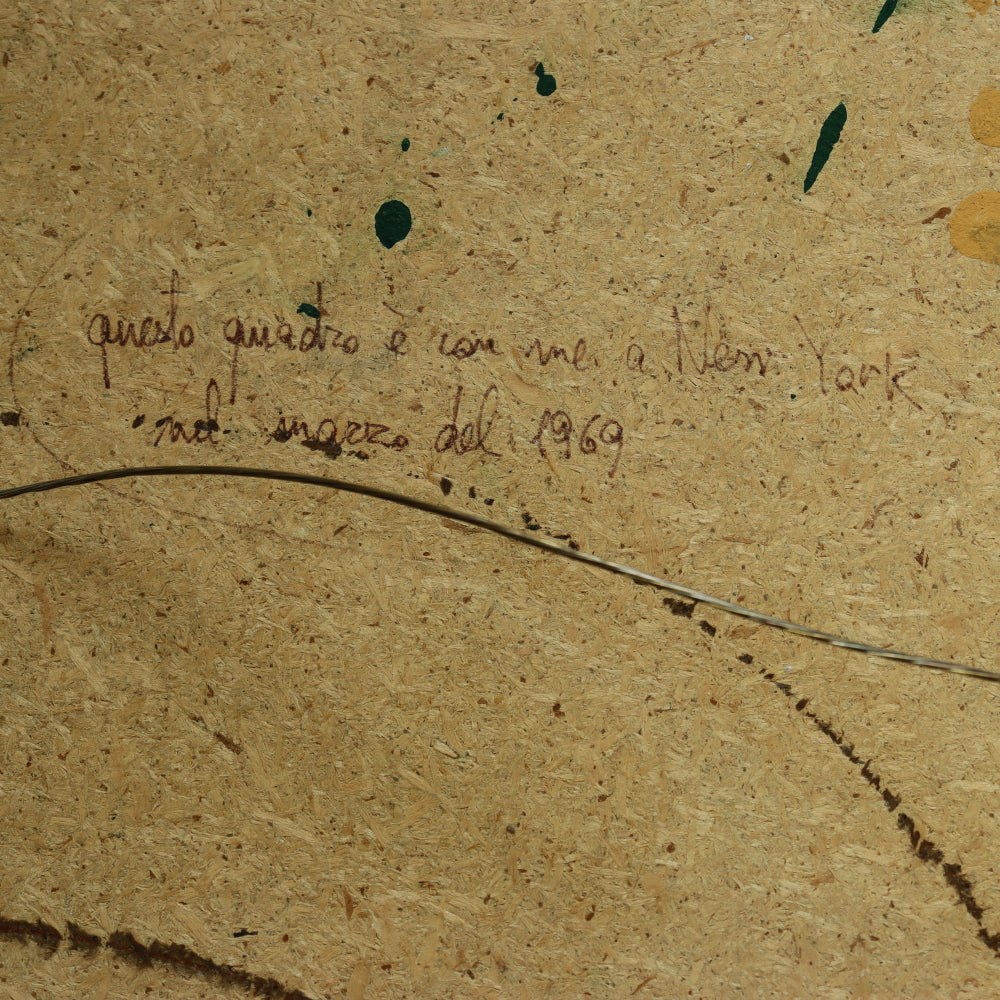 questo quadro è con me a New York
nel marzo del 1969